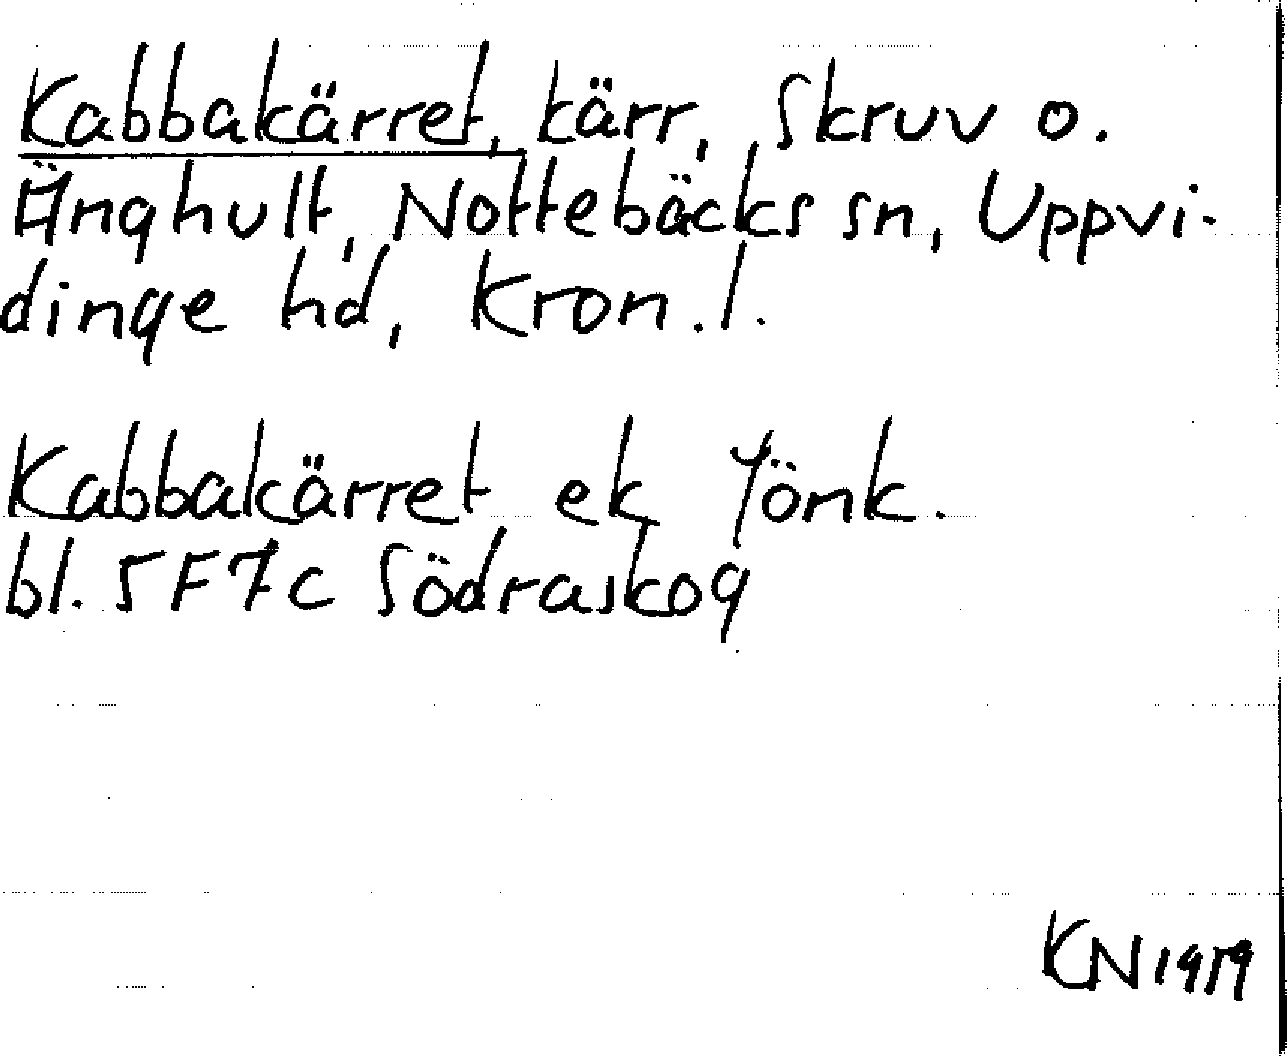 Kabbakärret, kärr, Skruv o.
Änghult, Nottebäcks sn, Uppvi-
dinge hd, Kron. l.
Kabbakärret ek Jönk.
bl. 5F7c Södraskog
KN 1979